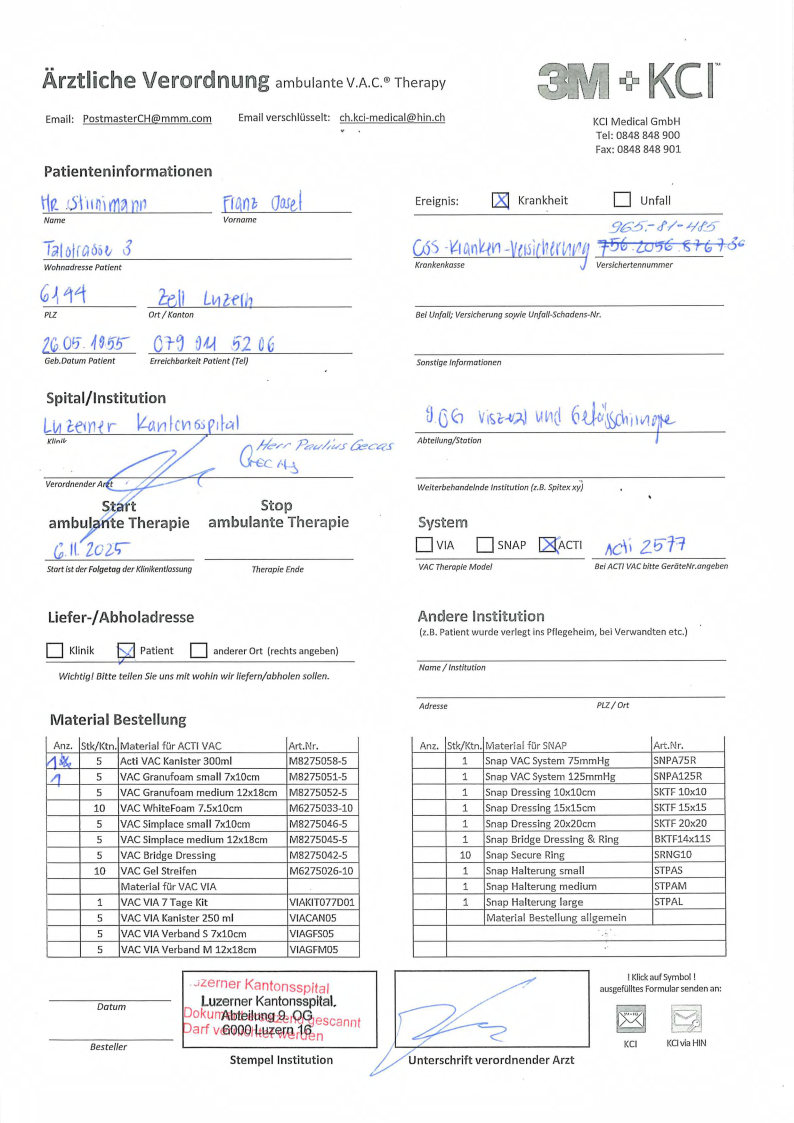 Ärztliche Verordnung ambulante V.A.C.® Therapy
3M KCI™
Email: PostmasterCH@mmm.com Email verschlüsselt: ch.kci-medical@hin.ch
KCI Medical GmbH
Tel: 0848 848 900
Fax: 0848 848 901
Patienteninformationen
Hr. Stinimann Franz Josef
Name Vorname
Talstrasse 3
Wohnadresse Patient
6144 Zell Luzern
PLZ Ort / Kanton
26.05.1955 079 911 52 06
Geb.Datum Patient Erreichbarkeit Patient (Tel)
Ereignis: Krankheit Unfall
965-81-485
CSS-Kranken-Versicherung 756.2056 8767 36
Krankenkasse Versichertennummer
Bei Unfall; Versicherung sowie Unfall-Schadens-Nr.
Sonstige Informationen
Spital/Institution
Luzerner Kantonsspital
Klinik
Herr Paulius Gecas
Gecas
Verordnender Arzt
9.OG Viszeral und Gefässchirurgie
Abteilung/Station
Weiterbehandelnde Institution (z.B. Spitex xy)
Start Stop
ambulante Therapie ambulante Therapie
6.11.2025
Start ist der Folgetag der Klinikentlassung Therapie Ende
System
VIA SNAP ACTI Acti 2577
VAC Therapie Model Bei ACTI VAC bitte GeräteNr.angeben
Liefer-/Abholadresse
Klinik Patient anderer Ort (rechts angeben)
Wichtig! Bitte teilen Sie uns mit wohin wir liefern/abholen sollen.
Andere Institution
(z.B. Patient wurde verlegt ins Pflegeheim, bei Verwandten etc.)
Name / Institution
Adresse PLZ / Ort
Material Bestellung
Anz. Stk/Ktn. Material für ACTI VAC Art.Nr.
1 5 Acti VAC Kanister 300ml M8275058-5
1 5 VAC Granufoam small 7x10cm M8275051-5
5 VAC Granufoam medium 12x18cm M8275052-5
10 VAC WhiteFoam 7.5x10cm M6275033-10
5 VAC Simplace small 7x10cm M8275046-5
5 VAC Simplace medium 12x18cm M8275045-5
5 VAC Bridge Dressing M8275042-5
10 VAC Gel Streifen M6275026-10
Material für VAC VIA
1 VAC VIA 7 Tage Kit VIAKIT077D01
5 VAC VIA Kanister 250 ml VIACAN05
5 VAC VIA Verband S 7x10cm VIAGFS05
5 VAC VIA Verband M 12x18cm VIAGFM05
Anz. Stk/Ktn. Material für SNAP Art.Nr.
1 Snap VAC System 75mmHg SNPA75R
1 Snap VAC System 125mmHg SNPA125R
1 Snap Dressing 10x10cm SKTF 10x10
1 Snap Dressing 15x15cm SKTF 15x15
1 Snap Dressing 20x20cm SKTF 20x20
1 Snap Bridge Dressing & Ring BKTF14x11S
10 Snap Secure Ring SRNG10
1 Snap Halterung small STPAS
1 Snap Halterung medium STPAM
1 Snap Halterung large STPAL
Material Bestellung allgemein
Datum
Besteller
Luzerner Kantonsspital
Luzerner Kantonsspital,
Abteilung 9. OG
6000 Luzern 16
gescannt
Darf vernichtet werden
Stempel Institution
Unterschrift verordnender Arzt
! Klick auf Symbol !
ausgefülltes Formular senden an:
KCI KCI via HIN